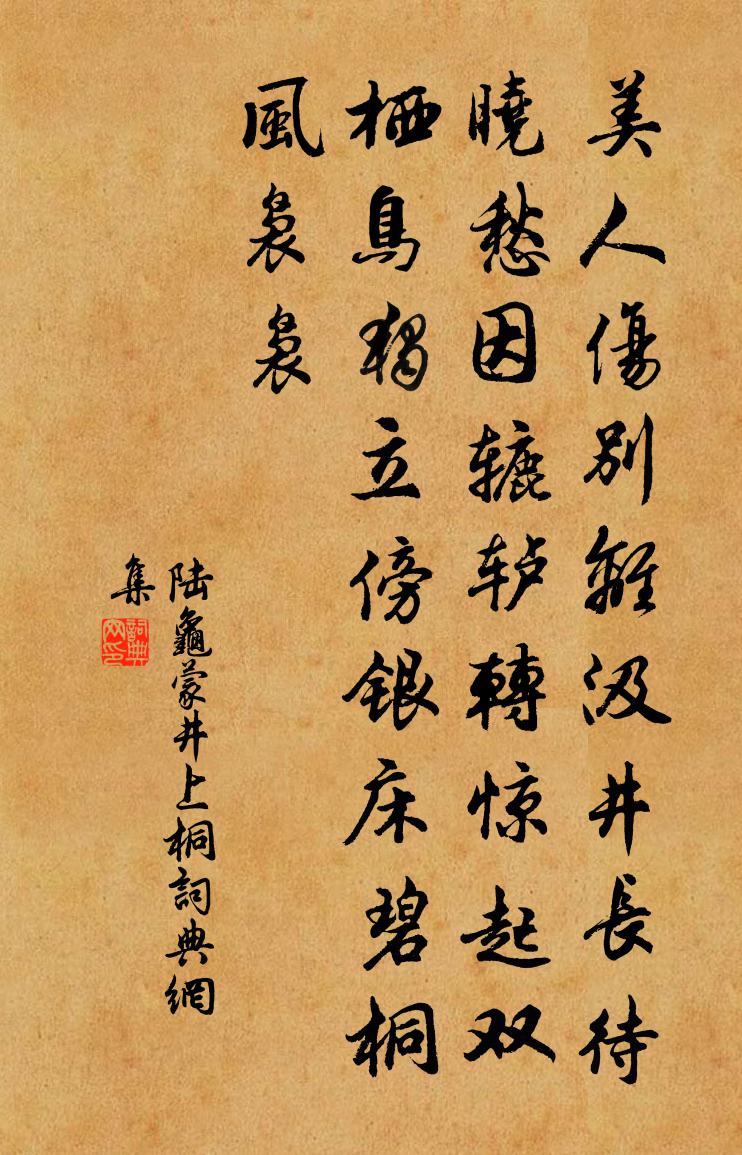 美人傷別離汲井長待
曉愁因辘轳轉惊起双
栖鳥獨立傍銀床碧桐
風裊裊
陆龜蒙井上桐詞典網
集
詞典
网印